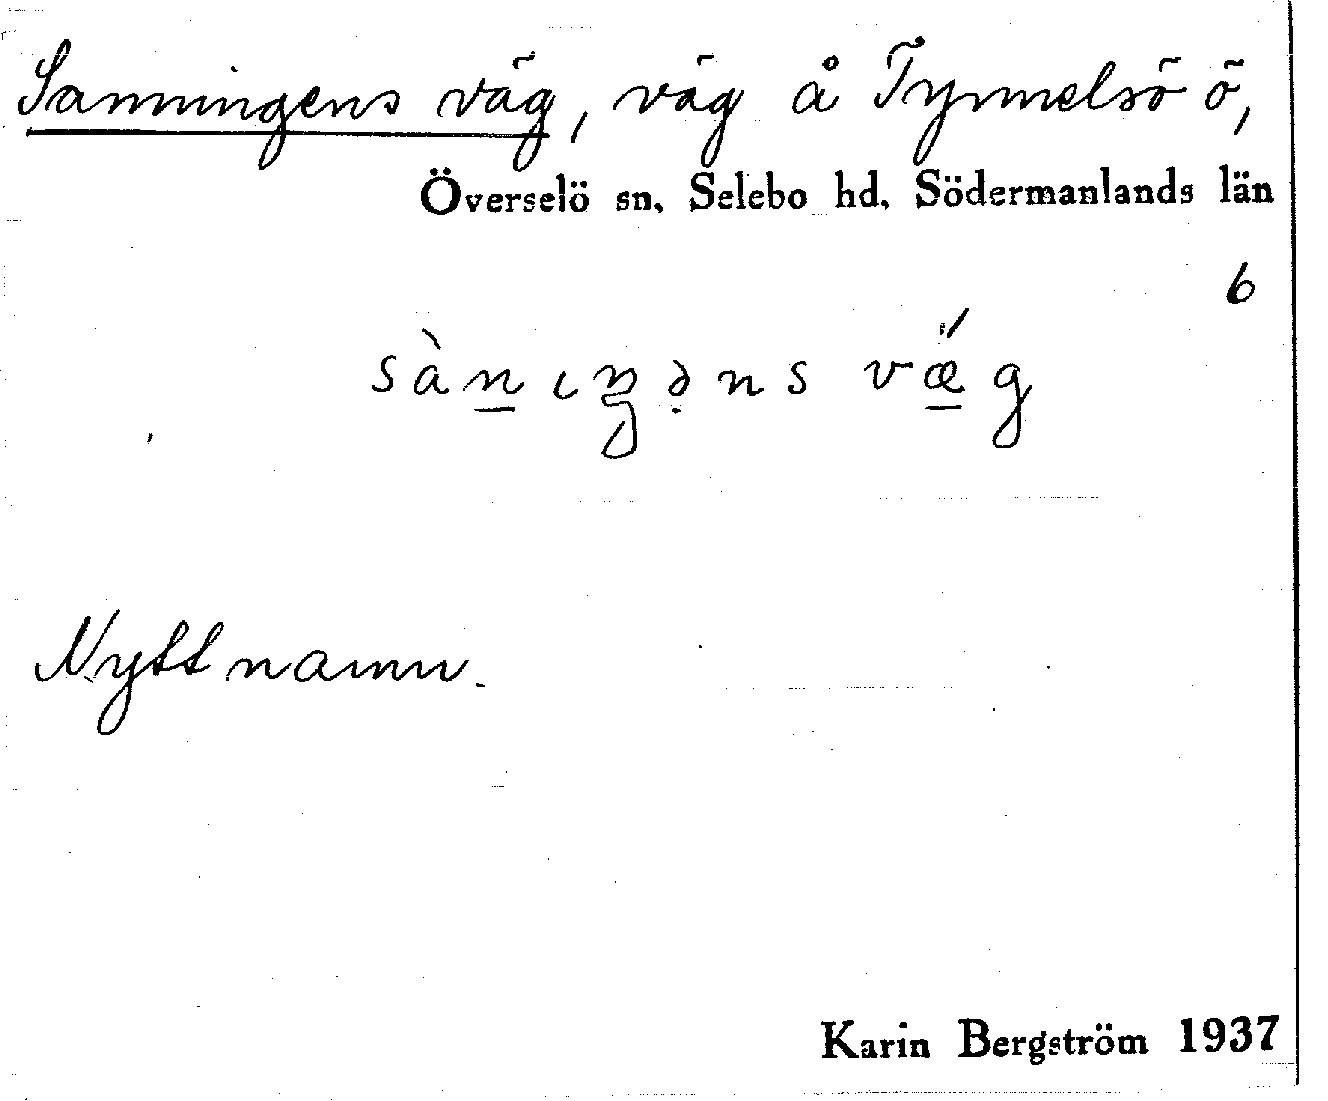 Sanningens väg, väg å Tynnelsö ö,
Överselö sn, Selebo hd, Södermanlands län
6
sàn̲ıŋə̣ns vǽ̲g
Nytt namn.
Karin Bergström 1937